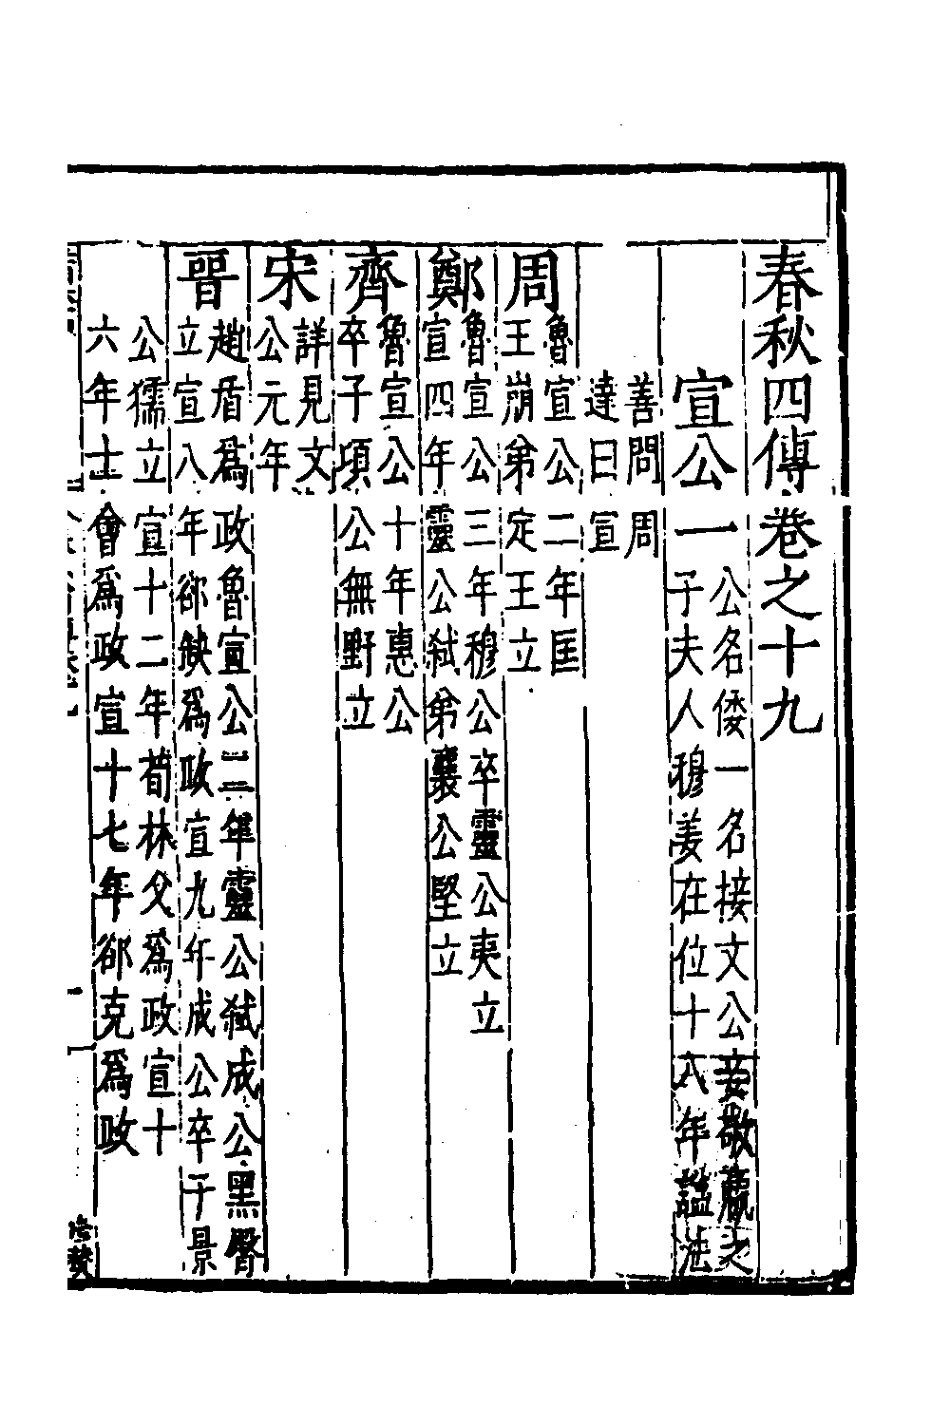 春秋四傳卷之十九
宣公一
公名倭一名接文公妾敬嬴之
子夫人穆姜在位十八年諡法
善問周
達曰宣
周
魯宣公二年匡
王崩弟定王立
鄭
魯宣公三年穆公卒靈公夷立
宣四年靈公弑弟襄公堅立
齊
魯宣公十年惠公
卒子項公無野立
宋
詳見文
公元年
晉
趙盾爲政魯宣公二年靈公弑成公黑臀
立宣八年郤缺爲政宣九年成公卒子景
公獳立宣十二年荀林父爲政宣十
六年士會爲政宣十七年郤克爲政